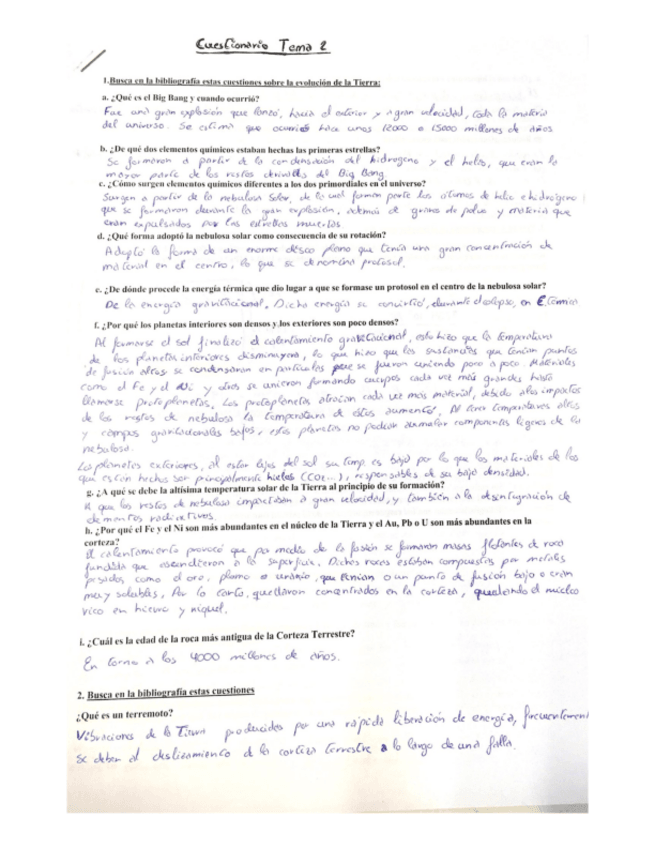 Cuestionario Tema 2
1.Busca en la bibliografía estas cuestiones sobre la evolución de la Tierra:
a. ¿Qué es el Big Bang y cuando ocurrió?
Fue una gran explosión que lanzó, hacia el exterior y a gran velocidad, toda la materia
del universo. Se estima que ocurrió hace unos 12000 o 15000 millones de años
b. ¿De qué dos elementos químicos estaban hechas las primeras estrellas?
Se formaron a partir de la condensación del hidrogeno y el helio, que eran la
mayor parte de los restos del Big Bang.
c. ¿Cómo surgen elementos químicos diferentes a los dos primordiales en el universo?
Surgen a partir de la nebulosa Solar, de la cual forman parte los átomos de helio e hidrogeno
que se formaron durante la gran explosión, además de granos de polvo y materia que
eran expulsados por las estrellas muertas.
d. ¿Qué forma adoptó la nebulosa solar como consecuencia de su rotación?
Adoptó la forma de un enorme disco plano que tenía una gran concentración de
material en el centro, lo que se denomina protosol.
e. ¿De dónde procede la energía térmica que dio lugar a que se formase un protosol en el centro de la nebulosa solar?
De la energía gravitacional. Dicha energía se convirtió, durante el colapso, en E.térmica
f. ¿Por qué los planetas interiores son densos y los exteriores son poco densos?
Al formarse el sol finalizó el calentamiento gravitacional, esto hizo que la temperatura
de los planetas interiores disminuyera, lo que hizo que las sustancias que tenían puntos
de fusión altos se condensaran en partículas se fueron uniendo poco a poco. Materiales
como el Fe y el Ni y otros se unieron formando cuerpos cada vez más grandes hasta
llamarse protoplanetas. Los protoplanetas atraían cada vez más material, debido a los impactos
de los restos de nebulosa la temperatura de éstos aumentó. Al tener temperaturas altas
y campos gravitacionales bajos, estos planetas no podían acumular componentes ligeros de la
nebulosa.
Los planetas exteriores, al estar lejos del sol su temp. es baja por lo que los materiales de los
que están hechos son principalmente hielos (CO2...), responsables de su baja densidad.
g. ¿A qué se debe la altísima temperatura solar de la Tierra al principio de su formación?
A que los restos de nebulosa impactaban a gran velocidad, y también a la desintegración de
elementos radiactivos
h. ¿Por qué el Fe y el Ni son más abundantes en el núcleo de la Tierra y el Au, Pb o U son más abundantes en la
corteza?
El calentamiento provocó que por medio de la fusión se formaran masas flotantes de roca
fundida que ascendieron a la superficie. Dichas rocas estaban compuestas por metales
pesados como el oro, plomo o uranio, que tenían o un punto de fusión bajo o eran
muy solubles, Por lo tanto, quedaron concentrados en la corteza, quedando el núcleo
rico en hierro y níquel.
i. ¿Cuál es la edad de la roca más antigua de la Corteza Terrestre?
En torno a los 4000 millones de años.
2. Busca en la bibliografía estas cuestiones
¿Qué es un terremoto?
Vibraciones de la Tierra producidas por una rápida liberación de energía, frecuentemen
se deben al deslizamiento de la corteza terrestre a lo largo de una falla.